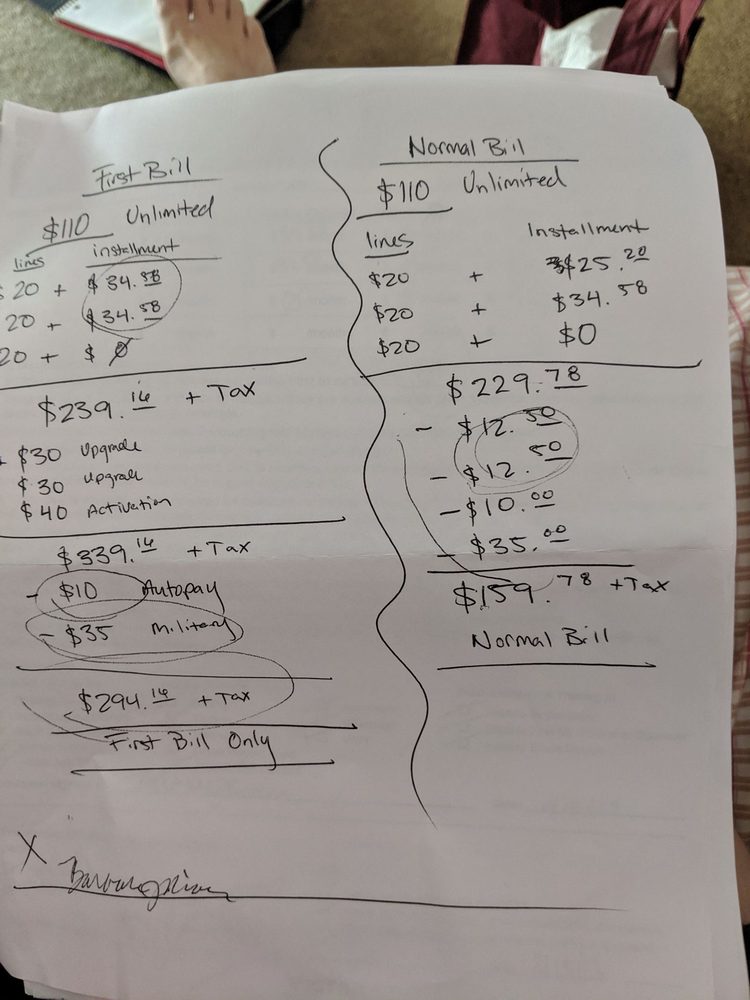 First Bill
$110 Unlimited
lines installment
$20 + $34.58
20 + $34.58
20 + $0
$239.16 + Tax
$30 Upgrade
$30 Upgrade
$40 Activation
$339.16 + Tax
- $10 Autopay
- $35 Military
$294.16 + Tax
First Bill Only
X
Normal Bill
$110 Unlimited
lines Installment
$20 + $25.20
$20 + $34.58
$20 + $0
$229.78
- $12.50
- $12.50
- $10.00
- $35.00
$159.78 + Tax
Normal Bill